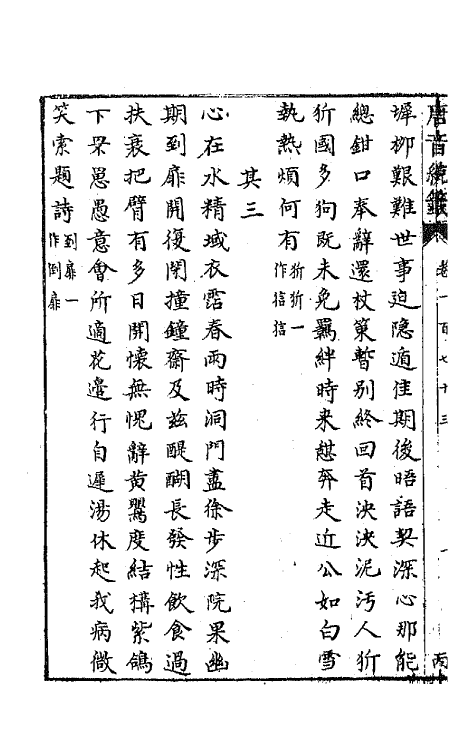 唐音統籤 卷一百七十三 一 丙
墀柳艱難世事迫隱遁佳期後晤語契深心那能
總鉗口奉辭還杖策暫別終回首泱泱泥污人㹞
㹞國多狗既未免羈絆時来憇奔走近公如白雪
執熱煩何有㹞㹞一作狺狺
其三
心在水精域衣霑春雨時洞門盡徐步深院果幽
期到扉開復閉撞鐘齋及兹醍醐長發性飲食過
扶衰把臂有多日開懷無愧辭黄鸎度結構紫鴿
下罘罳愚意會所適花邊行自遲湯休起我病微
笑索題詩到扉一作倒扉